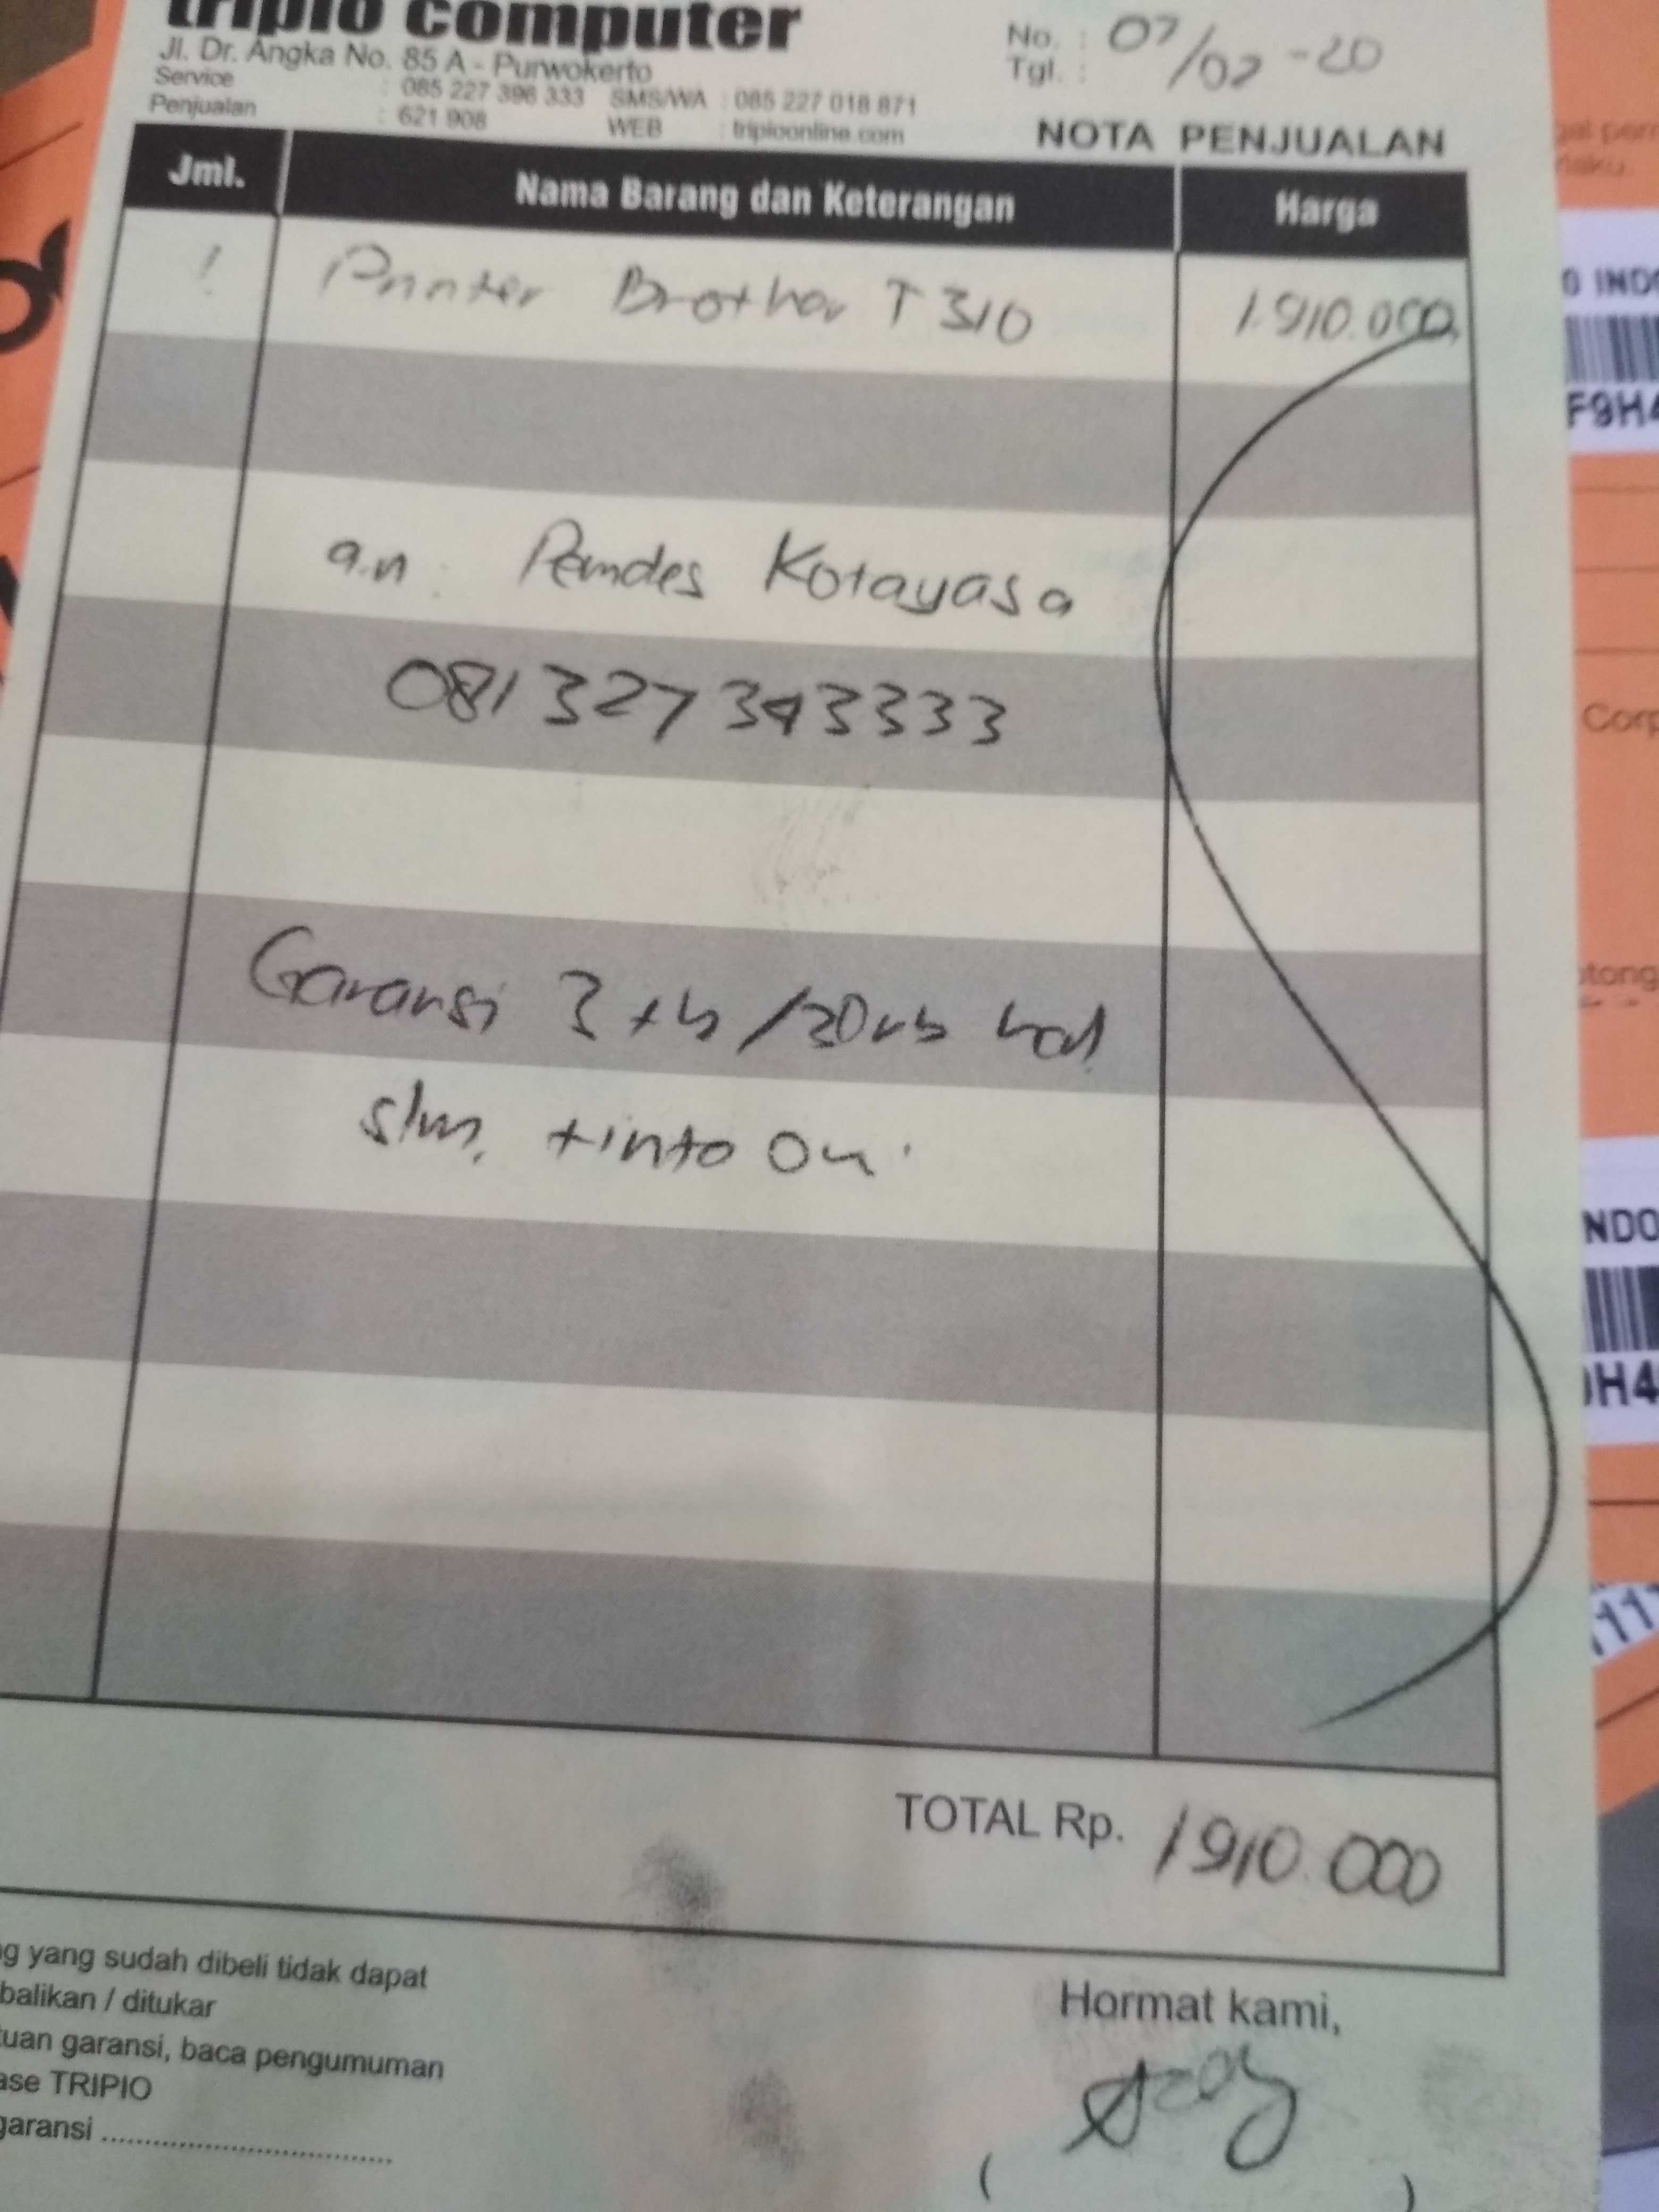 tripio computer
Jl. Dr. Angka No. 85 A - Purwokerto
Service : 085 227 396 333 SMS/WA : 085 227 018 871
Penjualan : 621 908 WEB : tripioonline.com
No. :
Tgl. : 07/02-20
NOTA PENJUALAN
Jml. Nama Barang dan Keterangan Harga
1 Printer Brother T310 1.910.000,
a.n. Pemdes Kotayasa
081327343333
Garansi 3 th/30rb hal
slm. tinta Ori
TOTAL Rp. 1910.000
g yang sudah dibeli tidak dapat
balikan / ditukar
tuan garansi, baca pengumuman
ase TRIPIO
garansi
Hormat kami,
( )
gal per
laku.
O INDO
F9H4
Corp
tong
NDO
H4
111